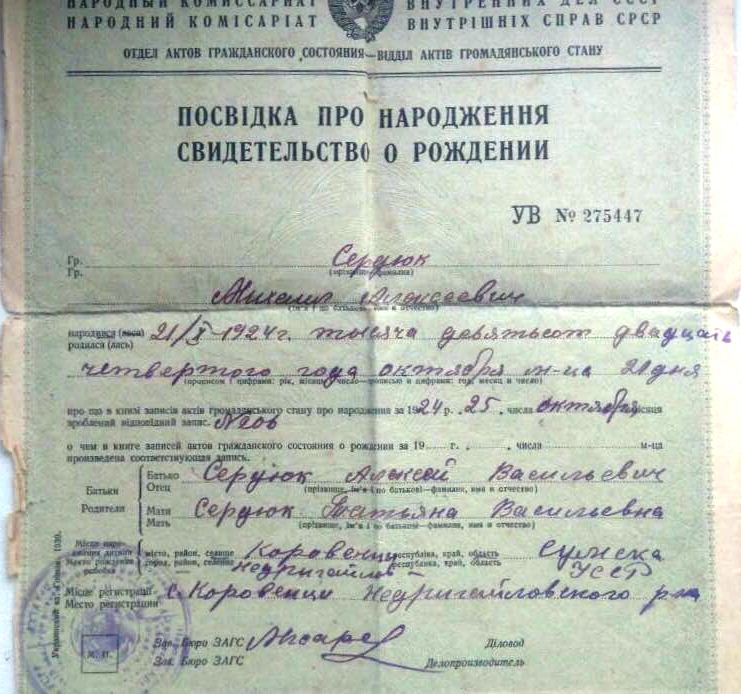 НАРОДНЫЙ КОМИССАРИАТ ВНУТРЕННИХ ДЕЛ СССР
НАРОДНИЙ КОМІСАРІАТ ВНУТРІШНІХ СПРАВ СРСР
ОТДЕЛ АКТОВ ГРАЖДАНСКОГО СОСТОЯНИЯ—ВІДДІЛ АКТІВ ГРОМАДЯНСЬКОГО СТАНУ
ПОСВІДКА ПРО НАРОДЖЕННЯ
СВИДЕТЕЛЬСТВО О РОЖДЕНИИ
УВ № 275447
Гр. Сердюк
Гр. (прізвище—фамилия)
Михаил Алексеевич
(ім'я і по батькові—имя и отчество)
народився (лася) 21/X-1924г. тысяча девятьсот двадцать
родился (лась)
четвертого года октября м-ца 21 дня
(прописом і цифрами: рік, місяць, число—прописью и цифрами: год, месяц и число)
про що в книзі записів актів громадянського стану про народження за 1924 р. 25. числа октября місяця
зроблений відповідний запис. №206
о чем в книге записей актов гражданского состояния о рождении за 19 г. , числа м-ца
произведена соответствующая запись.
Батьки Батько Сердюк Алексей Васильевич
Отец (прізвище, ім'я і по батькові—фамилия, имя и отчество)
Родители Мати Сердюк Татьяна Васильевна
Мать (прізвище, ім'я і по батькові—фамилия, имя и отчество)
Місце народження дитини місто, район, селище Коровенцы республіка, край, область Сумска
Место рождения ребенка город, район, селение Недригайлов республика, край, область УССР
Місце регистрації с. Коровенци Недригайловского р-на
Место регистрации
Зав. Бюро ЗАГС Діловод
Зав. Бюро ЗАГС Делопроизводитель
М. П.